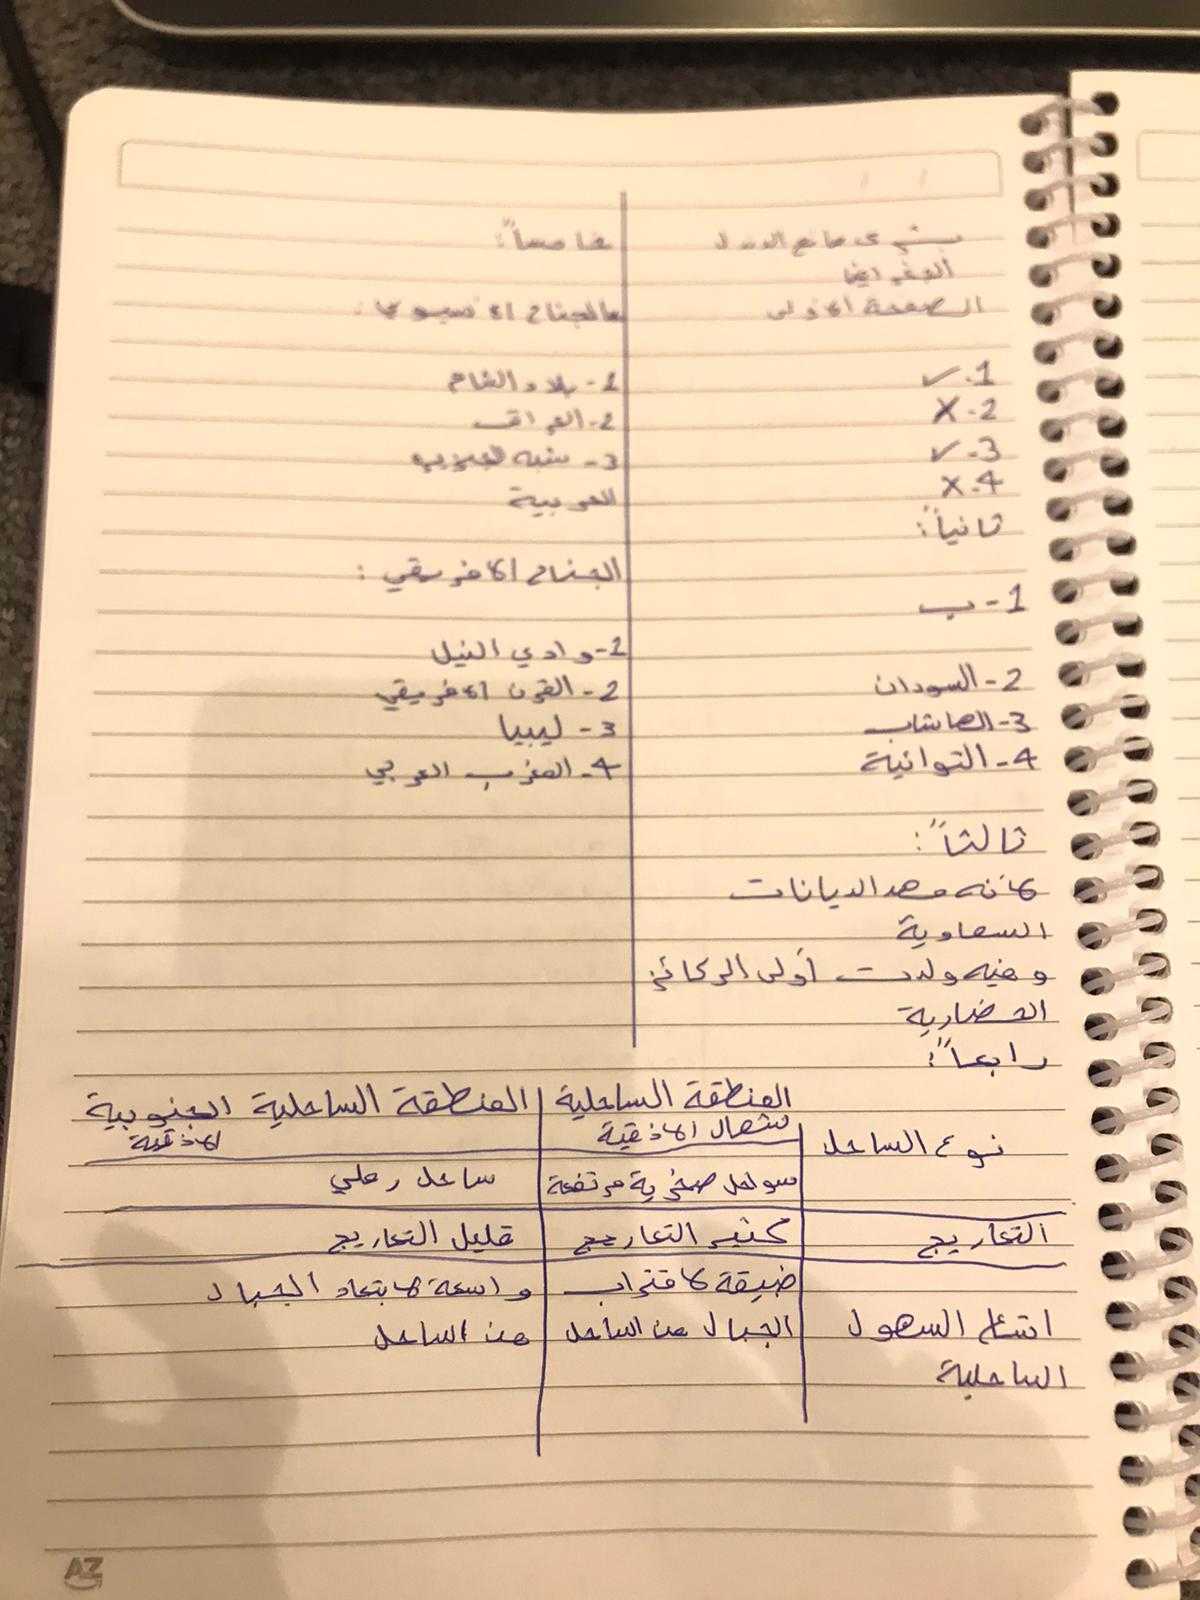 بشرى مانع الدندل
الجغرافيا
الصفحة الأولى
1. ✓
2. X
3. ✓
4. X
ثانياً:
1- ب
2- السودان
3- الهاشاب
4- التوانية
ثالثاً:
لأنه مهد الديانات
السماوية
وفيه ولدت أولى الركائز
الحضارية
رابعاً:
خامساً:
الجناح الآسيوي:
1- بلاد الشام
2- العراق
3- شبه الجزيرة
العربية
الجناح الافريقي:
1- وادي النيل
2- القرن الافريقي
3- ليبيا
4- المغرب العربي
المنطقة الساحلية المنطقة الساحلية الجنوبية
نوع الساحل شمال اللاذقية لاذقية
سواحل صخرية مرتفعة ساحل رملي
التعاريج كثير التعاريج قليل التعاريج
ضيقة لاقتراب واسعة لابتعاد الجبال
اتساع السهول الجبال من الساحل من الساحل
الساحلية
AZ